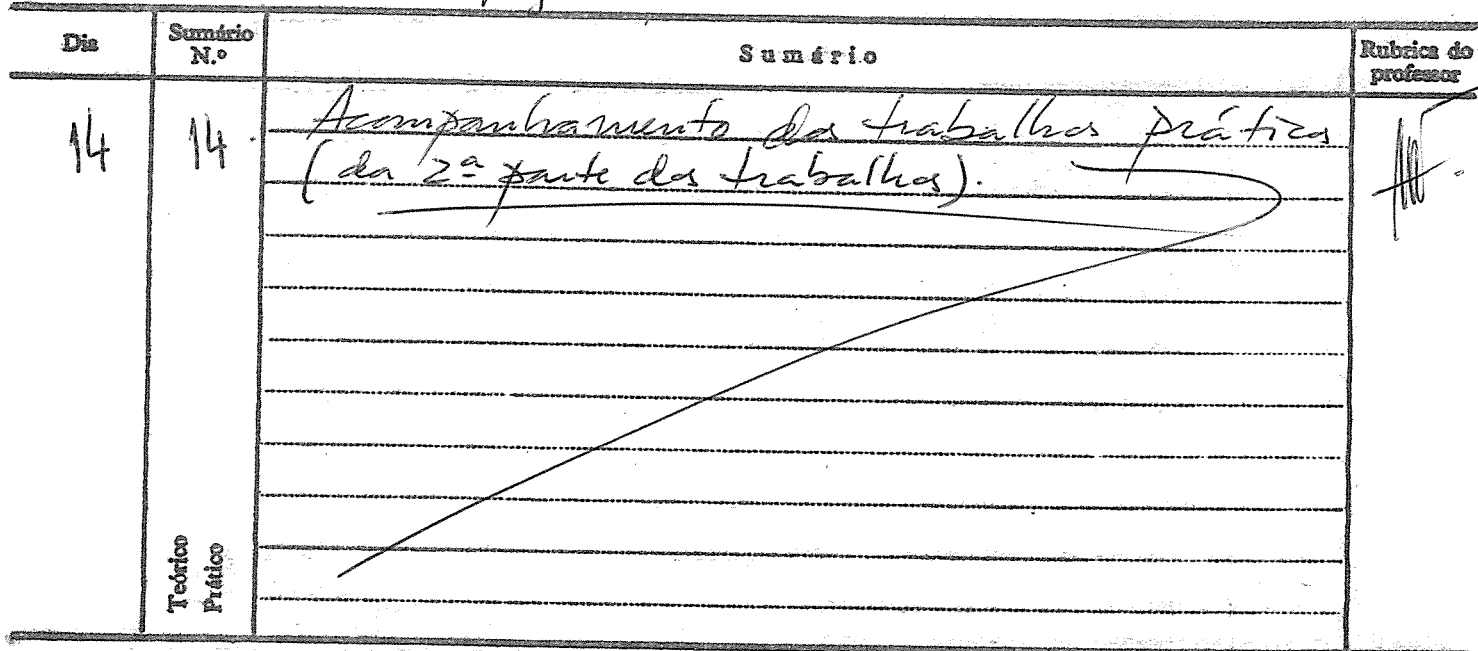 Dia
Sumário N.º
Sumário
Rubrica do professor
14
14.
Acompanhamento dos trabalhos práticos
(da 2ª parte dos trabalhos).
Teórico
Prático